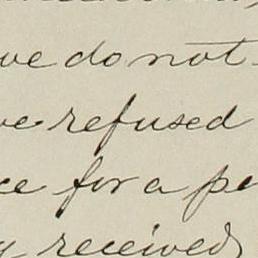 we do not
ve refused
ce for a pe
y received